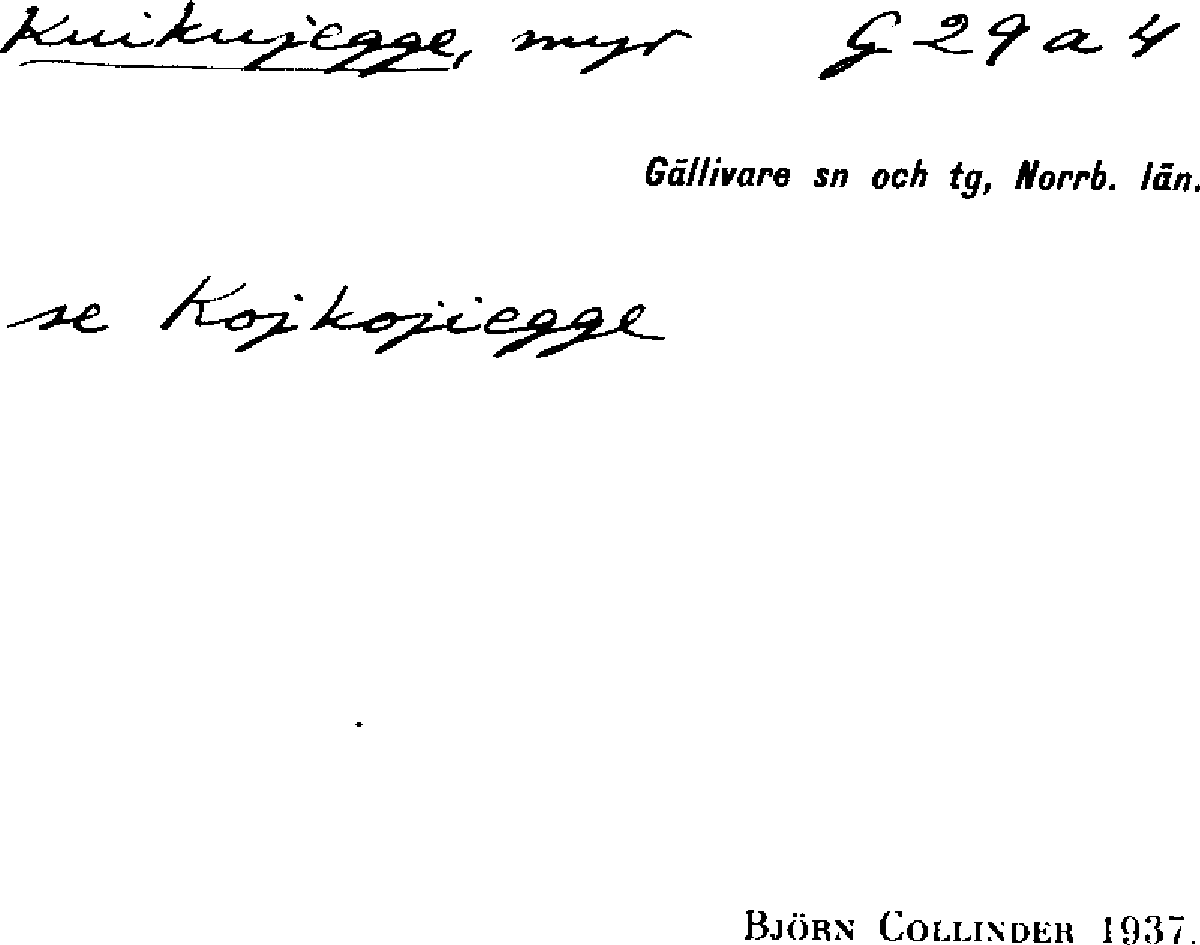 Kuikujegge, myr G 29 a 4
Gällivare sn och tg, Norrb. län.
se Kojkojiegge
BJÖRN COLLINDER 1937.